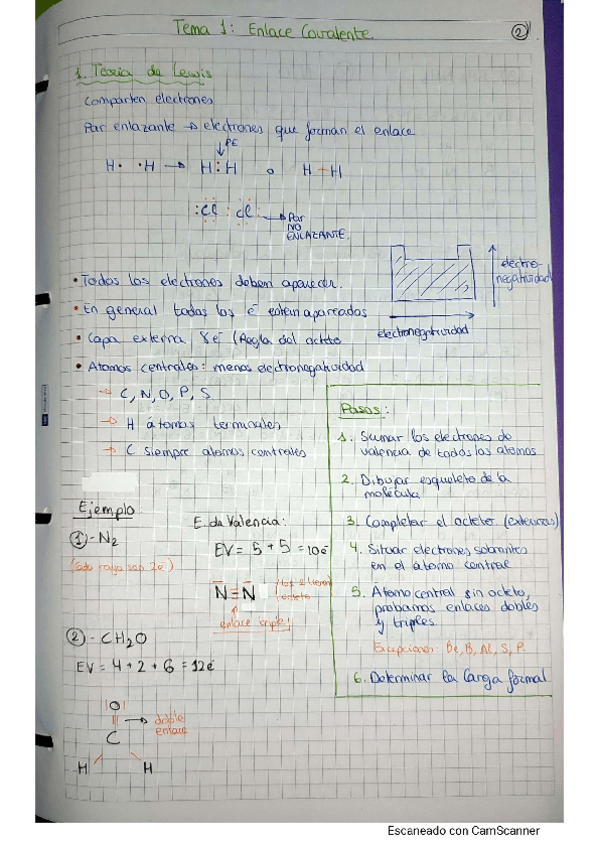 Tema 1: Enlace Covalente.
2
1. Teoría de Lewis
Comparten electrones
Par enlazante → electrones que forman el enlace
PE
H· ·H → H:H o H-H
:Cl : Cl: → Par
NO
ENLAZANTE.
• Todos los electrones deben aparecer.
• En general todos los e⁻ estén apareados
• Capa externa 8e⁻ (Regla del octeto
• Atomos centrales: menos electronegatividad
→ C, N, O, P, S
→ H átomos terminales
→ C siempre atomos centrales
electro-
negatividad
electronegatividad
Pasos:
1. Sumar los electrones de
valencia de todos los atomos
2. Dibujar esqueleto de la
molécula
3. Completar el octeto (externos)
4. Situar electrones sobrantes
en el átomo central
5. Átomo central sin octeto,
probamos enlaces dobles
y triples.
Excepciones: Be, B, Al, S, P.
6. Determinar la Carga formal
Ejemplo
①-N₂
(cada raya son 2e⁻)
E. de Valencia:
EV = 5 + 5 = 10e⁻
N≡N
octeto
enlace triple
②- CH₂O
EV = 4 + 2 + 6 = 12e⁻
|O|
|| → doble
enlace
C
H H
Escaneado con CamScanner